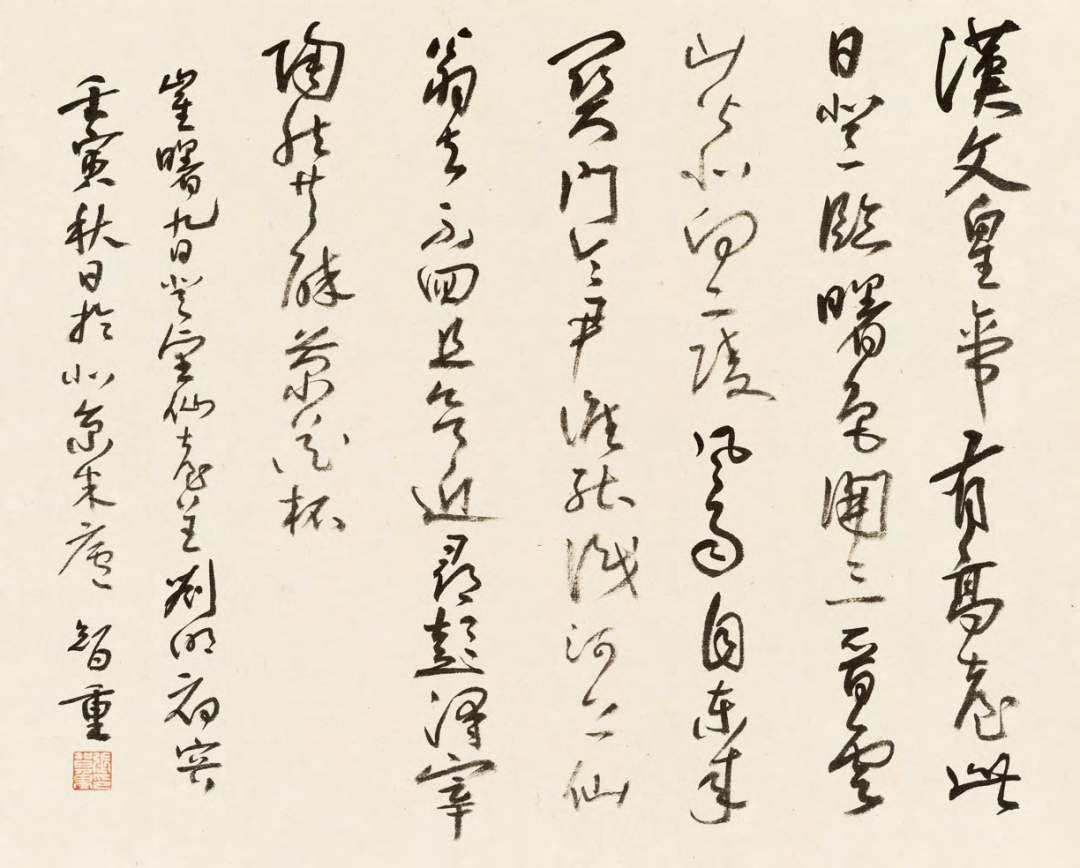 漢文皇帝有高臺此
日登臨曙色開三晉雲
山皆北向二陵風雨自東來
關門令尹誰能識河上仙
翁去不回且欲近尋彭澤宰
陶然共醉菊花杯
崔曙九日登望仙臺呈劉明府容
壬寅秋日於北京廬 智重